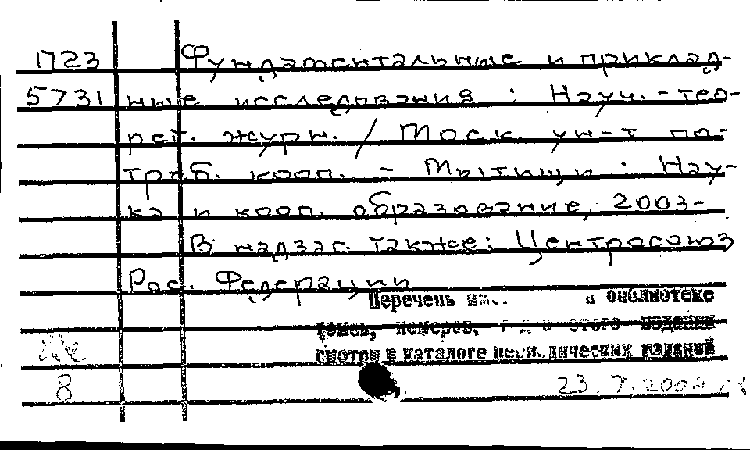 П23 Фундаментальные и приклад-
5731 ные исследования : Науч.-тео-
рет. журн. / Моск. ун-т по-
треб. кооп. - Мытищи : Нау-
ка и кооп. образование, 2003-
В надзаг. также: Центросоюз
Рос. Федерации
Перечень в библиотеке
томов, номеров, этого издания
смотри в каталоге периодических изданий
8 23.7.2004